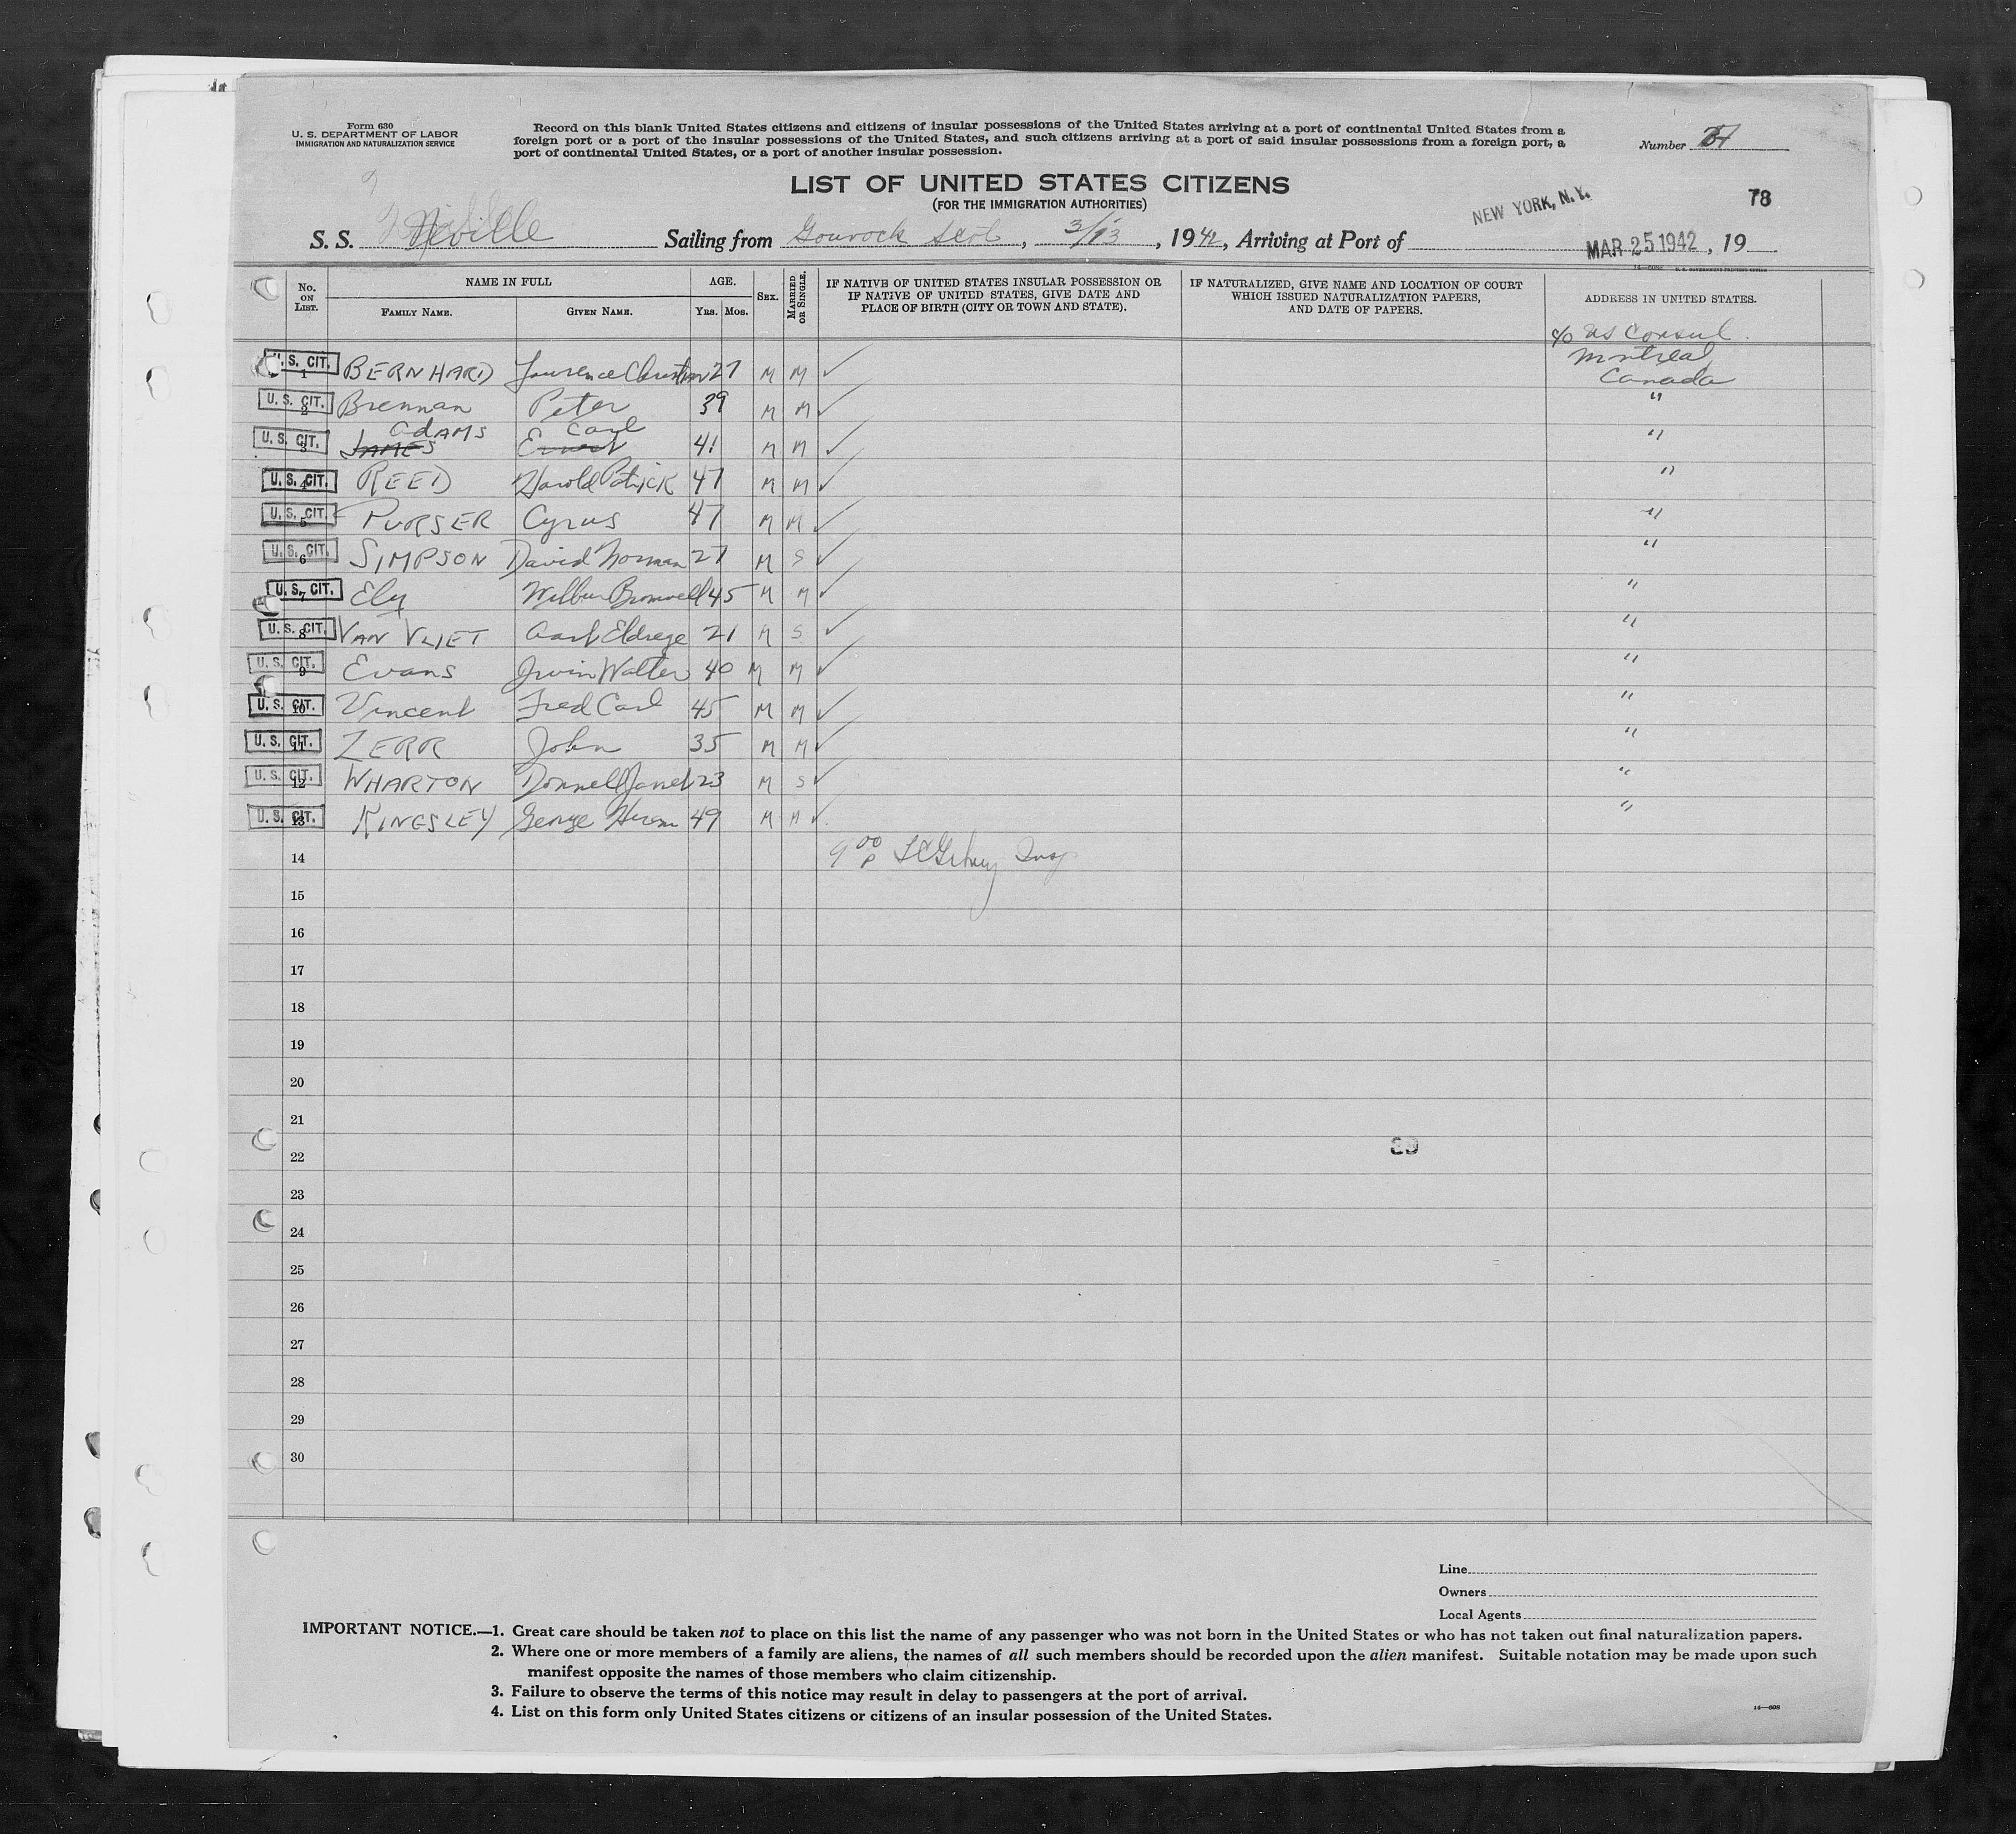 Form 630
U. S. DEPARTMENT OF LABOR
IMMIGRATION AND NATURALIZATION SERVICE
Record on this blank United States citizens and citizens of insular possessions of the United States arriving at a port of continental United States from a
foreign port or a port of the insular possessions of the United States, and such citizens arriving at a port of said insular possessions from a foreign port, a
port of continental United States, or a port of another insular possession.
Number
LIST OF UNITED STATES CITIZENS
(FOR THE IMMIGRATION AUTHORITIES)
78
NEW YORK, N.Y.
S. S. Neville Sailing from Gourock Scot, 3/13, 1942, Arriving at Port of MAR 25 1942, 19
No. ON LIST.
NAME IN FULL
FAMILY NAME. GIVEN NAME.
AGE.
YRS. MOS.
SEX.
MARRIED OR SINGLE.
IF NATIVE OF UNITED STATES INSULAR POSSESSION OR
IF NATIVE OF UNITED STATES, GIVE DATE AND
PLACE OF BIRTH (CITY OR TOWN AND STATE).
IF NATURALIZED, GIVE NAME AND LOCATION OF COURT
WHICH ISSUED NATURALIZATION PAPERS,
AND DATE OF PAPERS.
ADDRESS IN UNITED STATES.
c/o US Consul.
Montreal
Canada
U. S. CIT. 1 BERNHARD Laurence Christian 27 M M ✓
U. S. CIT. 2 Brennan Peter 39 M M ✓ "
Adams Carl
U. S. CIT. 3 JAMES Ernest 41 M M ✓ "
U. S. CIT. 4 REED Harold Patrick 47 M M ✓ "
U. S. CIT. 5 PURSER Cyrus 47 M M ✓ "
U. S. CIT. 6 SIMPSON David Norman 27 M S ✓ "
U. S. CIT. 7 Ely Wilbur Bromwell 45 M M ✓ "
U. S. CIT. 8 VAN VLIET Eldrege 21 M S ✓ "
U. S. CIT. 9 Evans Irwin Walter 40 M M ✓ "
U. S. CIT. 10 Vincent Fred Carl 45 M M ✓ "
U. S. CIT. 11 ZERR John 35 M M ✓ "
U. S. CIT. 12 WHARTON Donnell 23 M S ✓ "
U. S. CIT. 13 KINGSLEY George Hiram 49 M M ✓ "
14 9 00 P Insp
15
16
17
18
19
20
21
22
23
24
25
26
27
28
29
30
Line
Owners
Local Agents
IMPORTANT NOTICE.—1. Great care should be taken not to place on this list the name of any passenger who was not born in the United States or who has not taken out final naturalization papers.
2. Where one or more members of a family are aliens, the names of all such members should be recorded upon the alien manifest. Suitable notation may be made upon such
manifest opposite the names of those members who claim citizenship.
3. Failure to observe the terms of this notice may result in delay to passengers at the port of arrival.
4. List on this form only United States citizens or citizens of an insular possession of the United States.